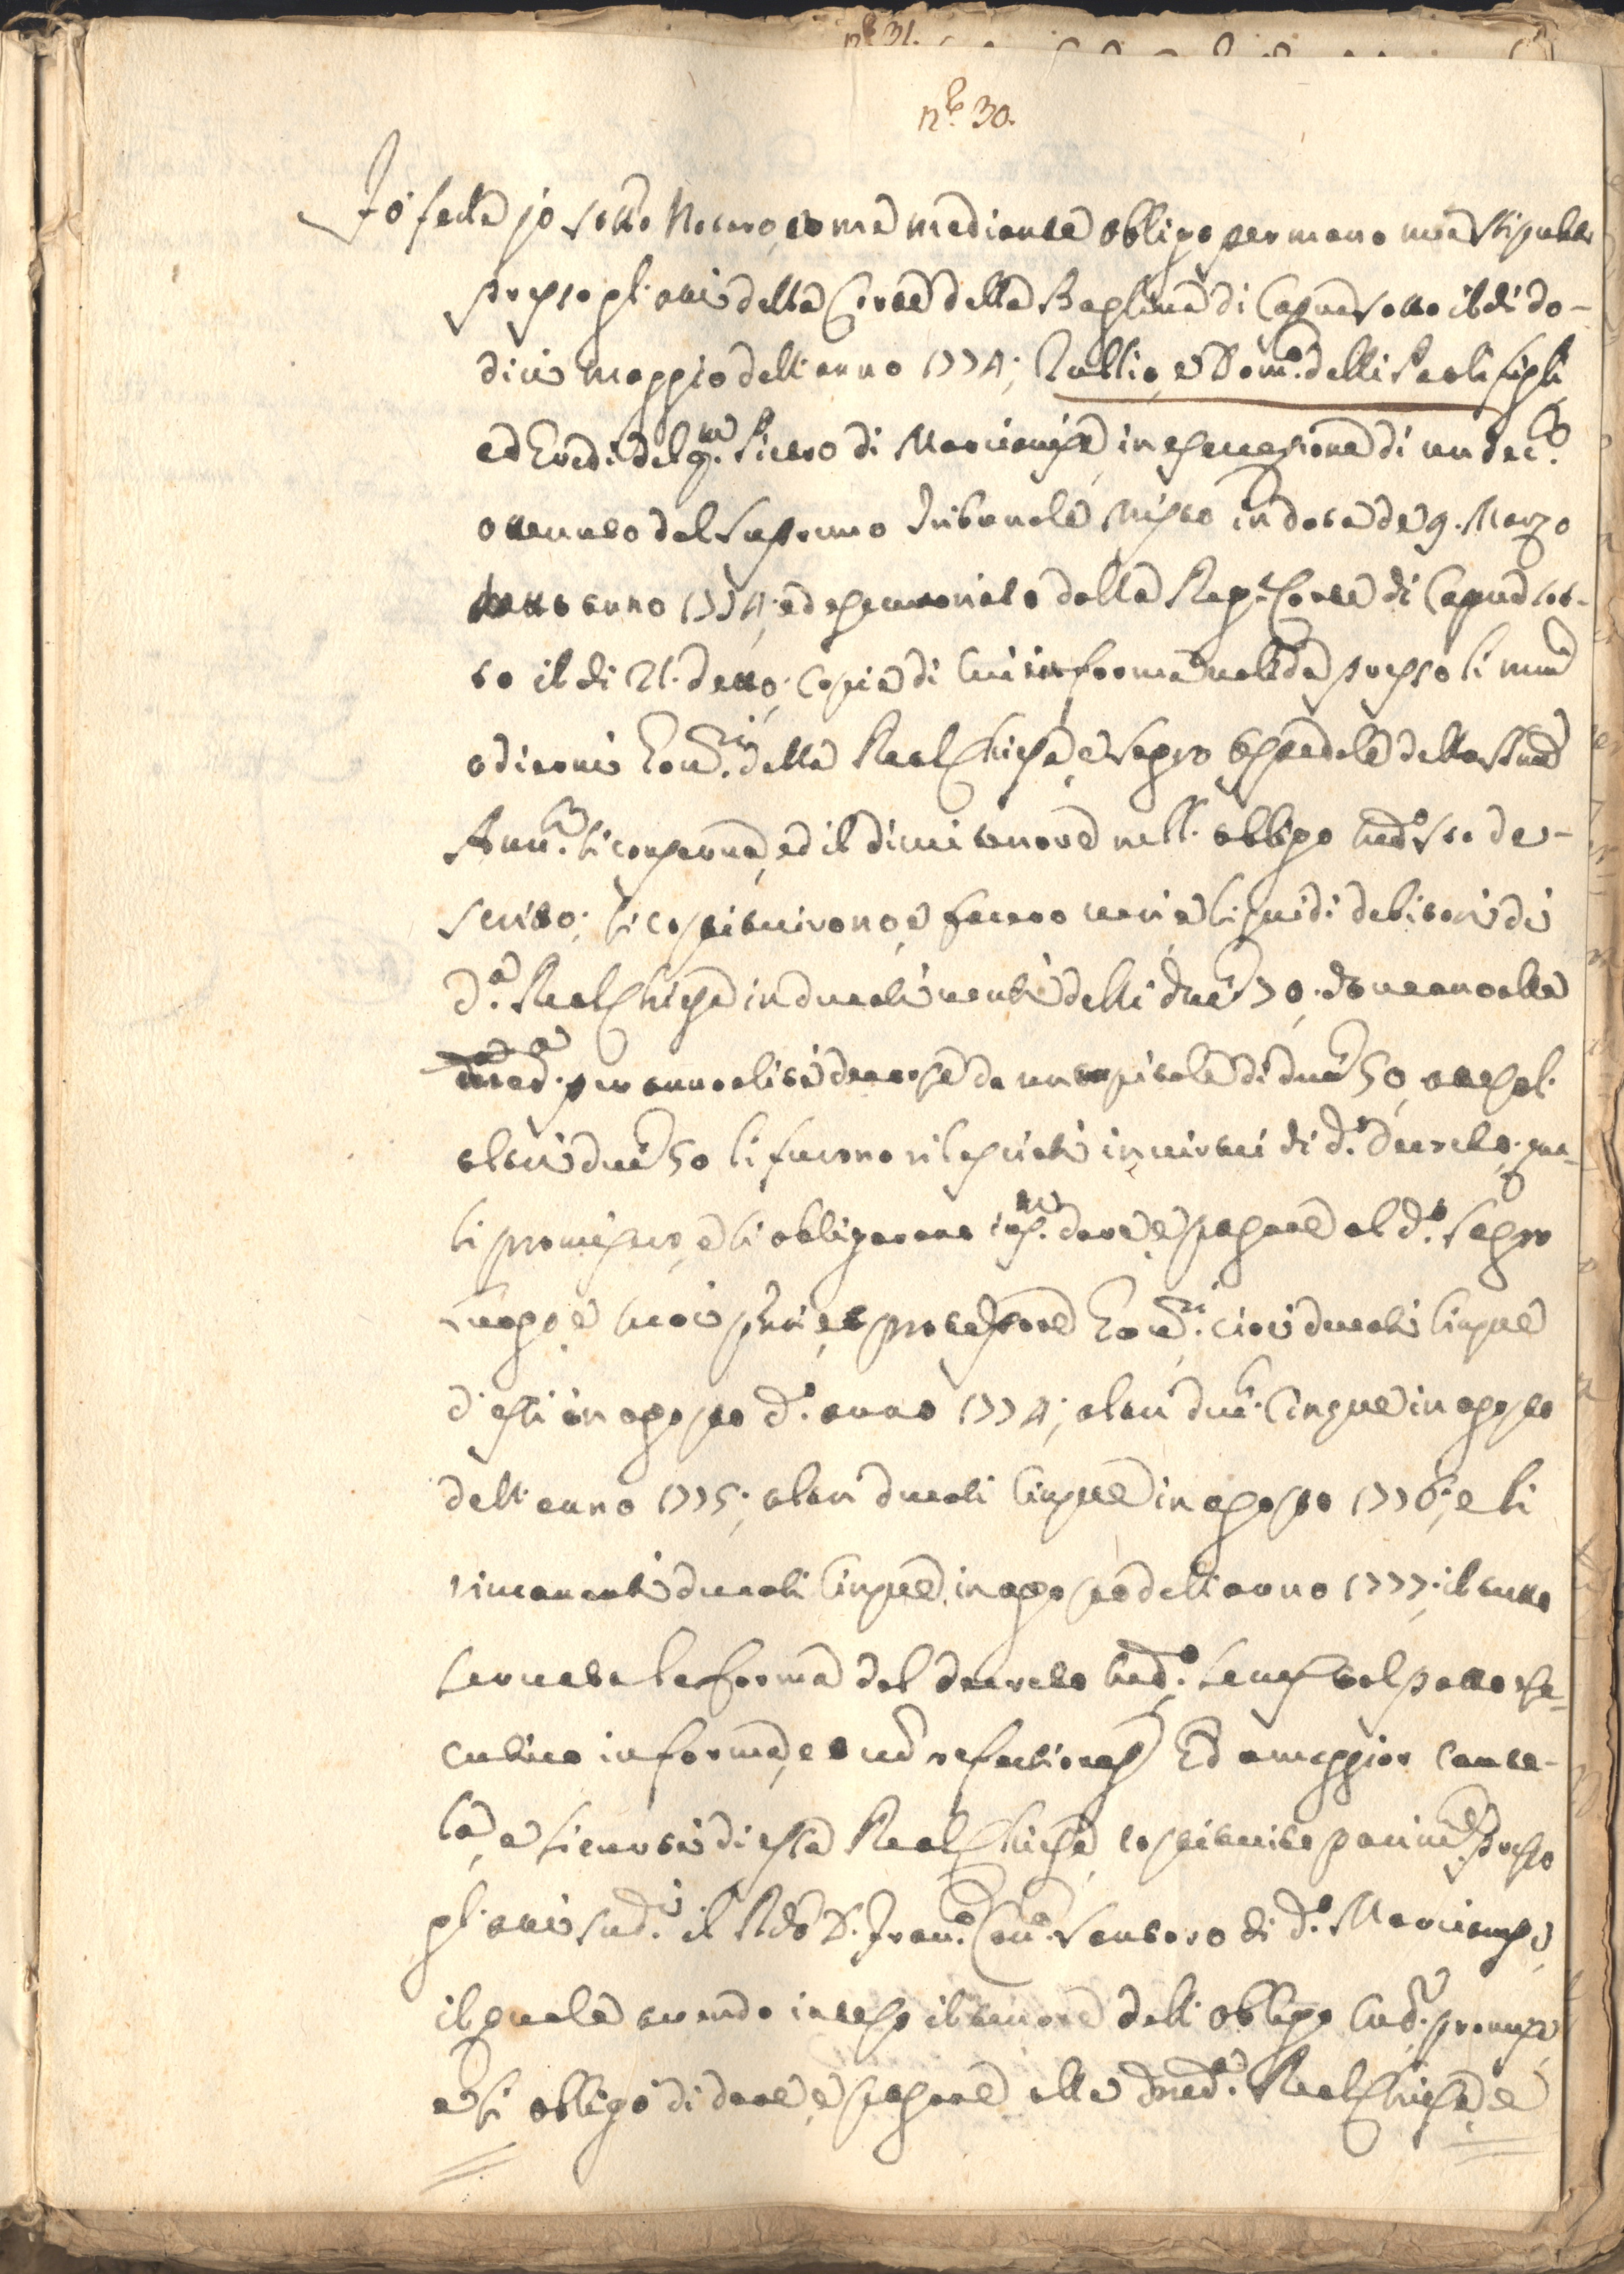 n.º 31.
n.º 30.
Fò fede jo sotto Notaro, come mediante obligo per mano mia stipulato
presso gli atti della Corte della Bagliva di Capua sotto il dì do-
dici maggio dell'anno 1774; Tullio, e Dom.co delli Paoli figli
ed Eredi del q.m Pietro di Marcianise, in esecuzione di un dec.to
ottenuto dal Supremo Tribunale Misto in data de 9. Marzo
detto anno 1774; ed esecutoriato dalla Reg.a Corte di Capua sot-
to il dì 21. detto; copia di cui in forma valida presso li med.
odierni Econ.mi della Real Chiesa, e Sagro Ospedale della SS.ma
Ann.ta si conserva, ed il di cui tenore nell'obligo sud.o sta de-
scritto; si costituirono, e fecero veri e liquidi debitori di
d.a Real Chiesa in ducati venti delli duc.ti 70. doveano alla
med.a per annualità decorse da un capitale di duc.ti 50, attesoché
altri duc.ti 50 li furono rilasciati in virtù di d.o decreto; qua-
li promisero, e si obligarono dare, e pagare al d.o Sagro
luogo, e suoi pnti, et pro tempore Econ.mi, cioè ducati cinque
d'essi in agosto d.o anno 1774; altri duc.ti cinque in agosto
dell'anno 1775; altri ducati cinque in agosto 1776; e li
rimanenti ducati cinque in agosto dell'anno 1777; il tutto
servata la forma del decreto sud.o col patto ese-
cutivo in forma, et cum refectione Ed a maggior caute-
la, e sicurtà di essa Real Chiesa, costituito parimente presso
gli atti sud.i il Rdo D. Fran.co Can.co Santoro di d.o Marcianise,
il quale avendo inteso il tenore dell'obligo sud.o, promise,
e si obligò di dare, e pagare alla med.a Real Chiesa, e